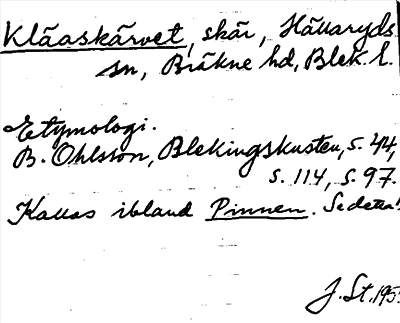 Kläaskärvet, skär, Hällaryds
sn, Bräkne hd, Blek. l.
Etymologi.
B. Ohlsson, Blekingskusten, s. 44,
s. 114, s. 97.
Kallas ibland Pinnen. Se detta!
J. St. 195